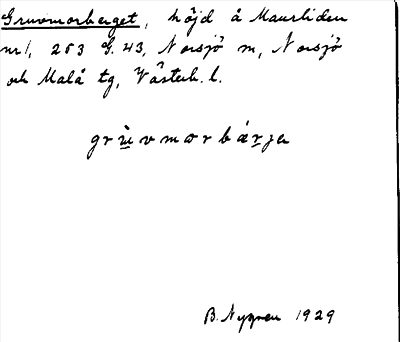 Gruvmorberget, höjd å Maurliden
nr1, 253 G. 43, Norsjö m, Norsjö
och Malå tg, Västerb. l.
grùvmorbárja
B. Nygren 1929